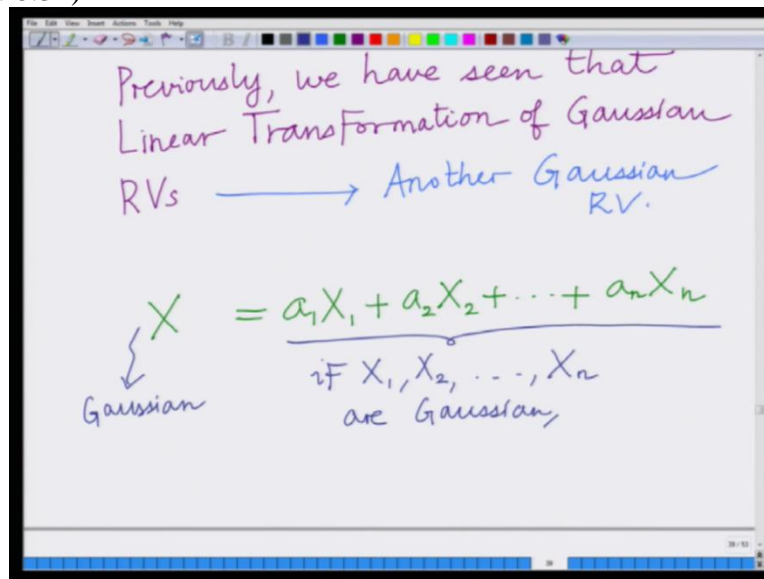 File Edit View Insert Actions Tools Help
Previously, we have seen that
Linear Transformation of Gaussian
RVs ⟶ Another Gaussian
RV.
X = a₁X₁ + a₂X₂ + ··· + aₙXₙ
if X₁, X₂, ..., Xₙ
Gaussian
are Gaussian,